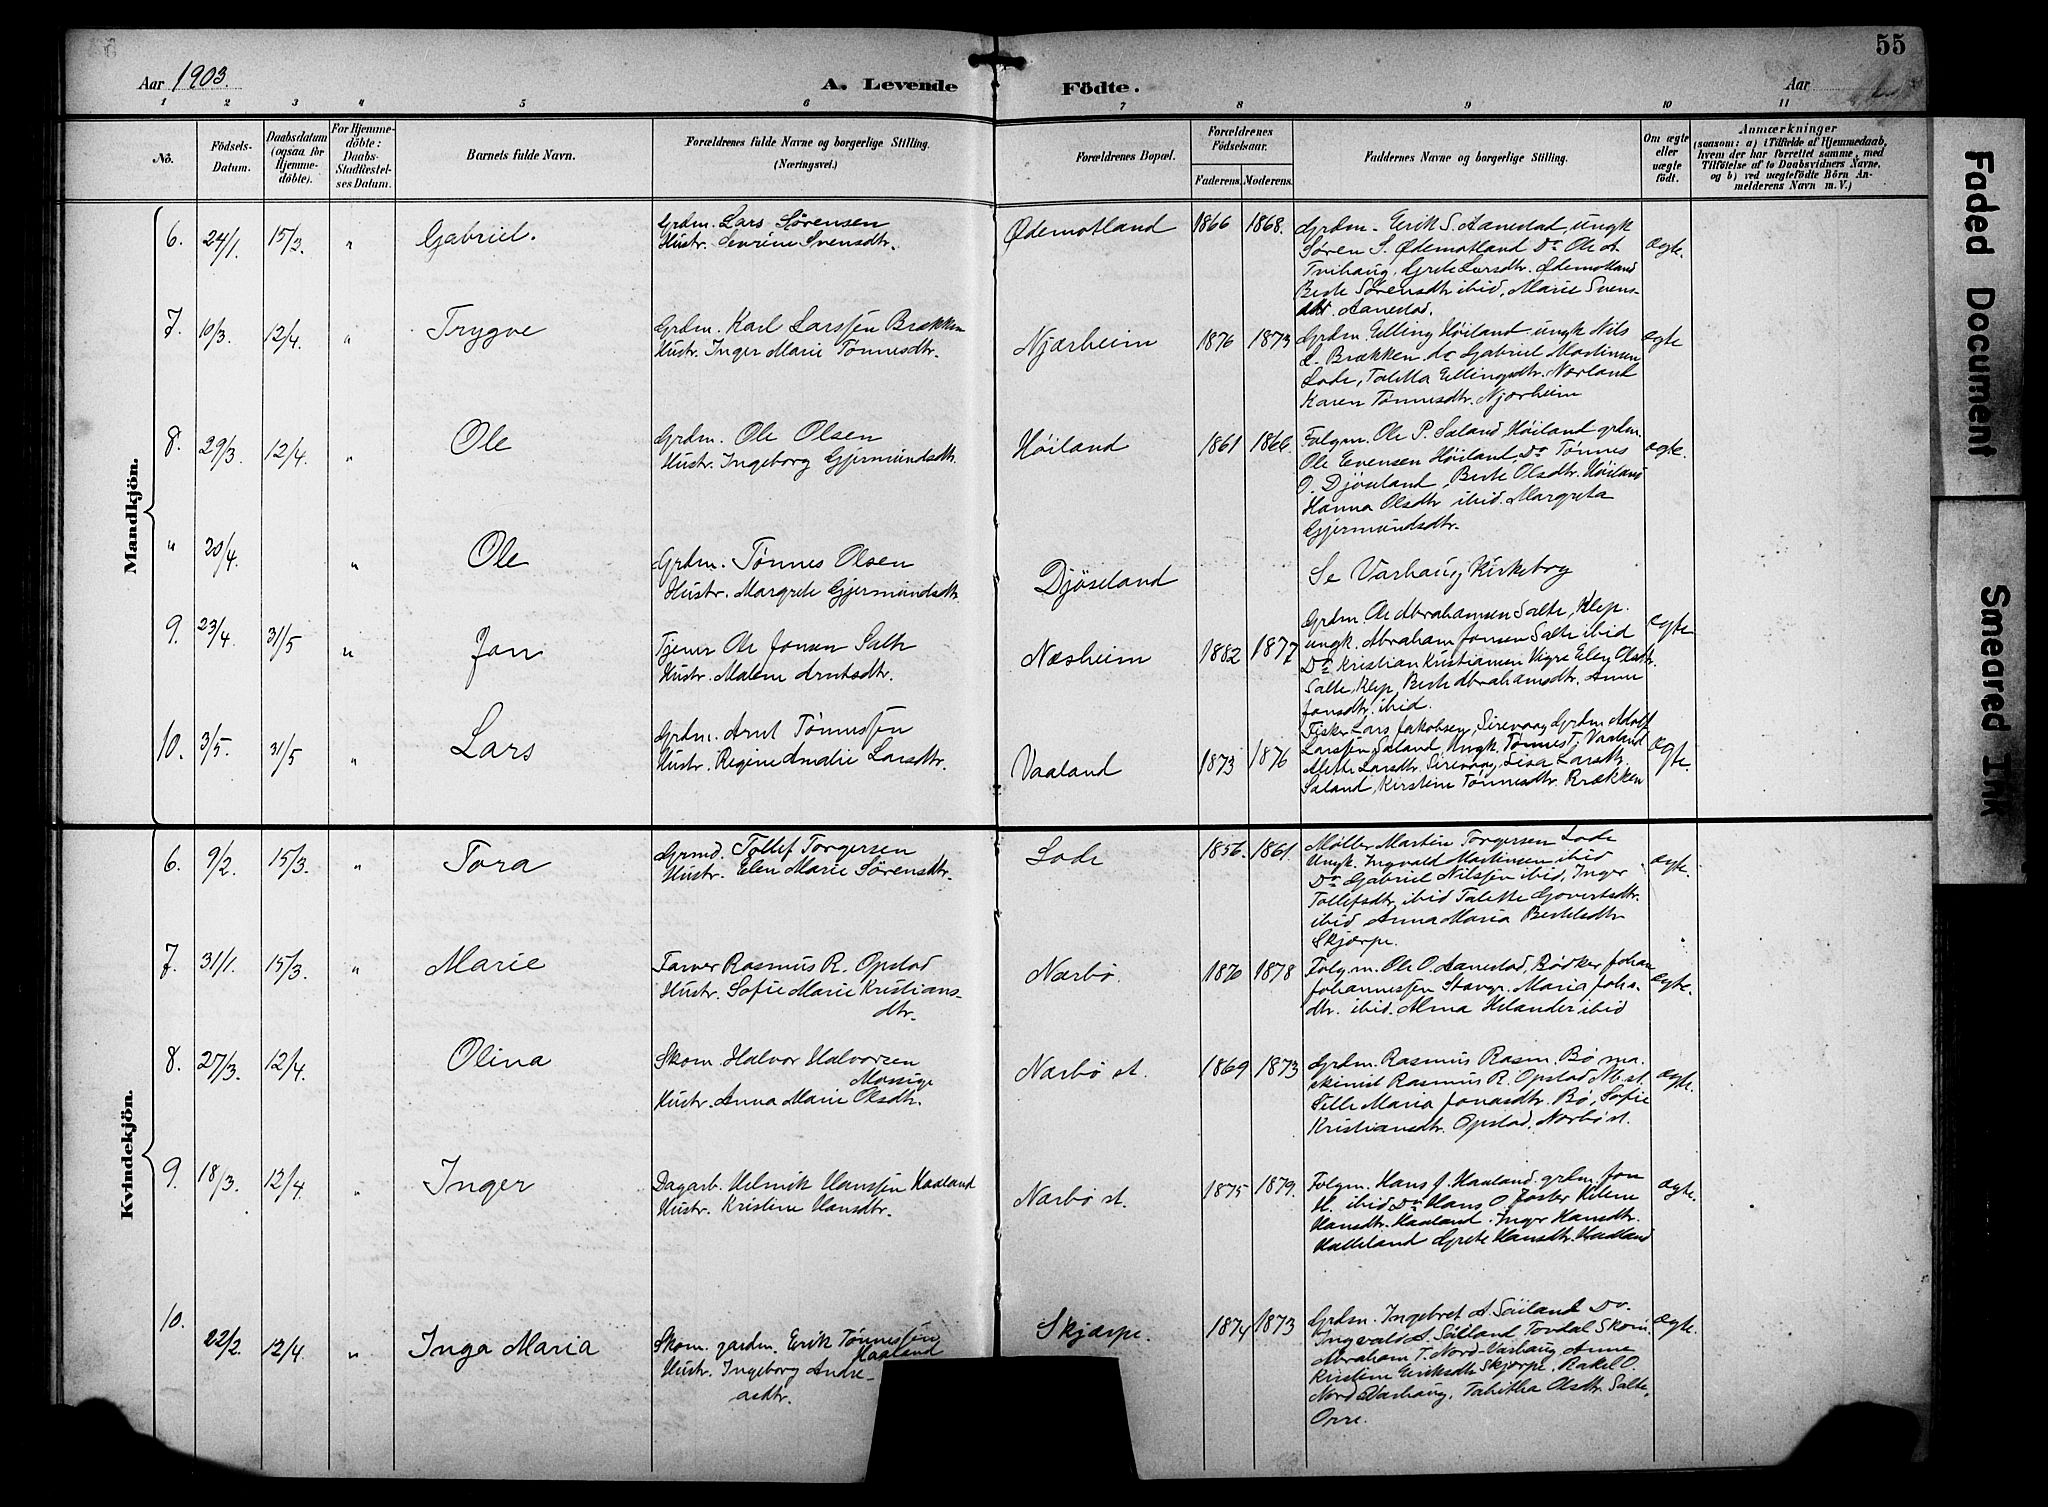 55
Aar 1903.
A. Levende Födte.
Aar
1 2 3 4 5 6 7 8 9 10 11
No.
Födsels-Datum.
Daabsdatum (ogsaa for Hjemmedöbte).
For Hjemmedöbte: Daabs-Stadfæstelses Datum.
Barnets fulde Navn.
Forældrenes fulde Navne og borgerlige Stilling. (Næringsvei.)
Forældrenes Bopæl.
Forældrenes Födselsaar.
Faderens. Moderens.
Faddernes Navne og borgerlige Stilling.
Om ægte eller uægte födt.
Anmærkninger
(saasom: a) i Tilfælde af Hjemmedaab, hvem der har forrettet samme, med Tilföielse af to Daabsvidners Navne, og b) ved uægtefödte Börn Anmelderens Navn m. V.)
Mandkjön.
6. 24/1. 15/3. " Gabriel.
Grdm. Lars Sørensen
Hustr. Sevrine Svensdtr.
Ødemotland 1866 1868.
Grdm. Erik S. Aanestad, ungk
Søren S. Ødemotland Do Ole A.
Tvihaug, Grete Larsdtr. Ødemotland
Berte Sørensdtr ibid, Marie Svens-
dtr. Aanestad.
ægte.
7. 10/3. 12/4. " Trygve
Grdm. Karl Larssen Brækken
Hustr. Inger Marie Tønnesdtr.
Njærheim 1876 1873
Grdm. Elling Høiland, ungk Nils
L. Brækken. do Gabriel Martinsen
Lode, Taletta Ellingsdtr. Nærland
Karen Tønnesdtr. Njærheim
ægte
8. 29/3. 12/4. " Ole
Grdm. Ole Olsen
Hustr. Ingeborg Gjermundsdtr.
Høiland 1861 1866.
Folgm. Ole P. Saland, Høiland grdm.
Ole Evensen Høiland, Do Tønnes
O. Djøseland, Berte Olsdtr. Høiland
Hanna Olsdtr ibid. Margreta
Gjermundsdtr.
ægte.
" 20/4. " Ole
Grdm. Tønnes Olsen
Hustr. Margrete Gjermundsdtr.
Djøseland
Se Varhaug Kirkebog
9. 23/4 31/5 " Jon
Tjener Ole Jonsen Salte
Hustr. Malene Arntsdtr.
Næsheim 1882 1877
Grdm Ole Abrahamsen Salte, Klep.
ungk. Abraham Jonsen Salte ibid
Do Kristian Kristiansen Vigre Elen Olsdtr.
Salte, Klep, Berte Abrahamsdtr. Anne
Jonsdtr. ibid.
ægte
10. 3/5. 31/5 " Lars
Grdm. Arnt Tønnessen
Hustr. Regine Amalie Larsdtr.
Vaaland 1873 1876
Fisker Lars Jakobsen, Sirevaag Grdm Adolf
Larssen, Saland, Ungk. Tønnes T. Vaaland
Mette Larsdtr. Sirevaag, Lisa Larsdtr.
Saland, Kirstine Tønnesdtr. Brækken
ægte.
Kvindekjön.
6. 9/2. 15/3. " Tora
Grmd. Tollef Torgersen
Hustr. Elen Marie Sørensdtr.
Lode 1856. 1861.
Møller Martin Torgersen Lode
Ungk. Ingvald Martinsen ibid
Do Gabriel Nilssen ibid, Inger
Tollefsdtr, ibid Talette Govertsdtr.
ibid Anna Maria Bertelsdtr
Skjærpe.
ægte.
7. 31/1. 15/3. " Marie
Farver Rasmus R. Opstad
Hustr. Sofie Marie Kristians-
dtr.
Nærbø. 1870 1878
Folgm. Ole O. Aanestad, Bødker Johan
Johannessen Stavgr. Maria Johs-
dtr. ibid. Alma Helander ibid
ægte.
8. 27/3. 12/4. Olina
Skom. Halvor Halvorsen
Mossige
Hustr. Anna Marie Olsdtr.
Nærbø st. 1869 1873
Grdm. Rasmus Rasm. Bø ma-
skinist Rasmus R. Opstad Nb. st.
Sille Maria Jonasdtr. Bø, Sofie
Kristiansdtr. Opstad. Nærbø st.
ægte.
9. 18/3. 12/4. " Inger
Dagarb. Helmik Hanssen Haaland
Hustr. Kristine Hansdtr.
Nærbø st. 1875 1879.
Folgm. Hans J. Haaland, grdm. Jon
H. ibid Do Hans O. Helene
Hansdtr. Haaland. Inger Hansdtr.
Halleland Grete Hansdtr. Haaland
ægte.
10. 22/2. 12/4. " Inga Maria
Skom. gardm. Erik Tønnessen
Haaland
Hustr. Ingeborg Andre-
asdtr.
Skjærpe. 1874 1873
Grdm. Ingebret A. Søiland Do.
Ingvald A. Søiland Tovdal Skom.
Abraham T. Nord-Varhaug, Anne
Kirstine Eriksdtr Skjærpe. Rakel O.
Nord Varhaug, Tabitha Olsdtr. Salte,
Orre.
ægte.
Faded Document
Smeared Ink